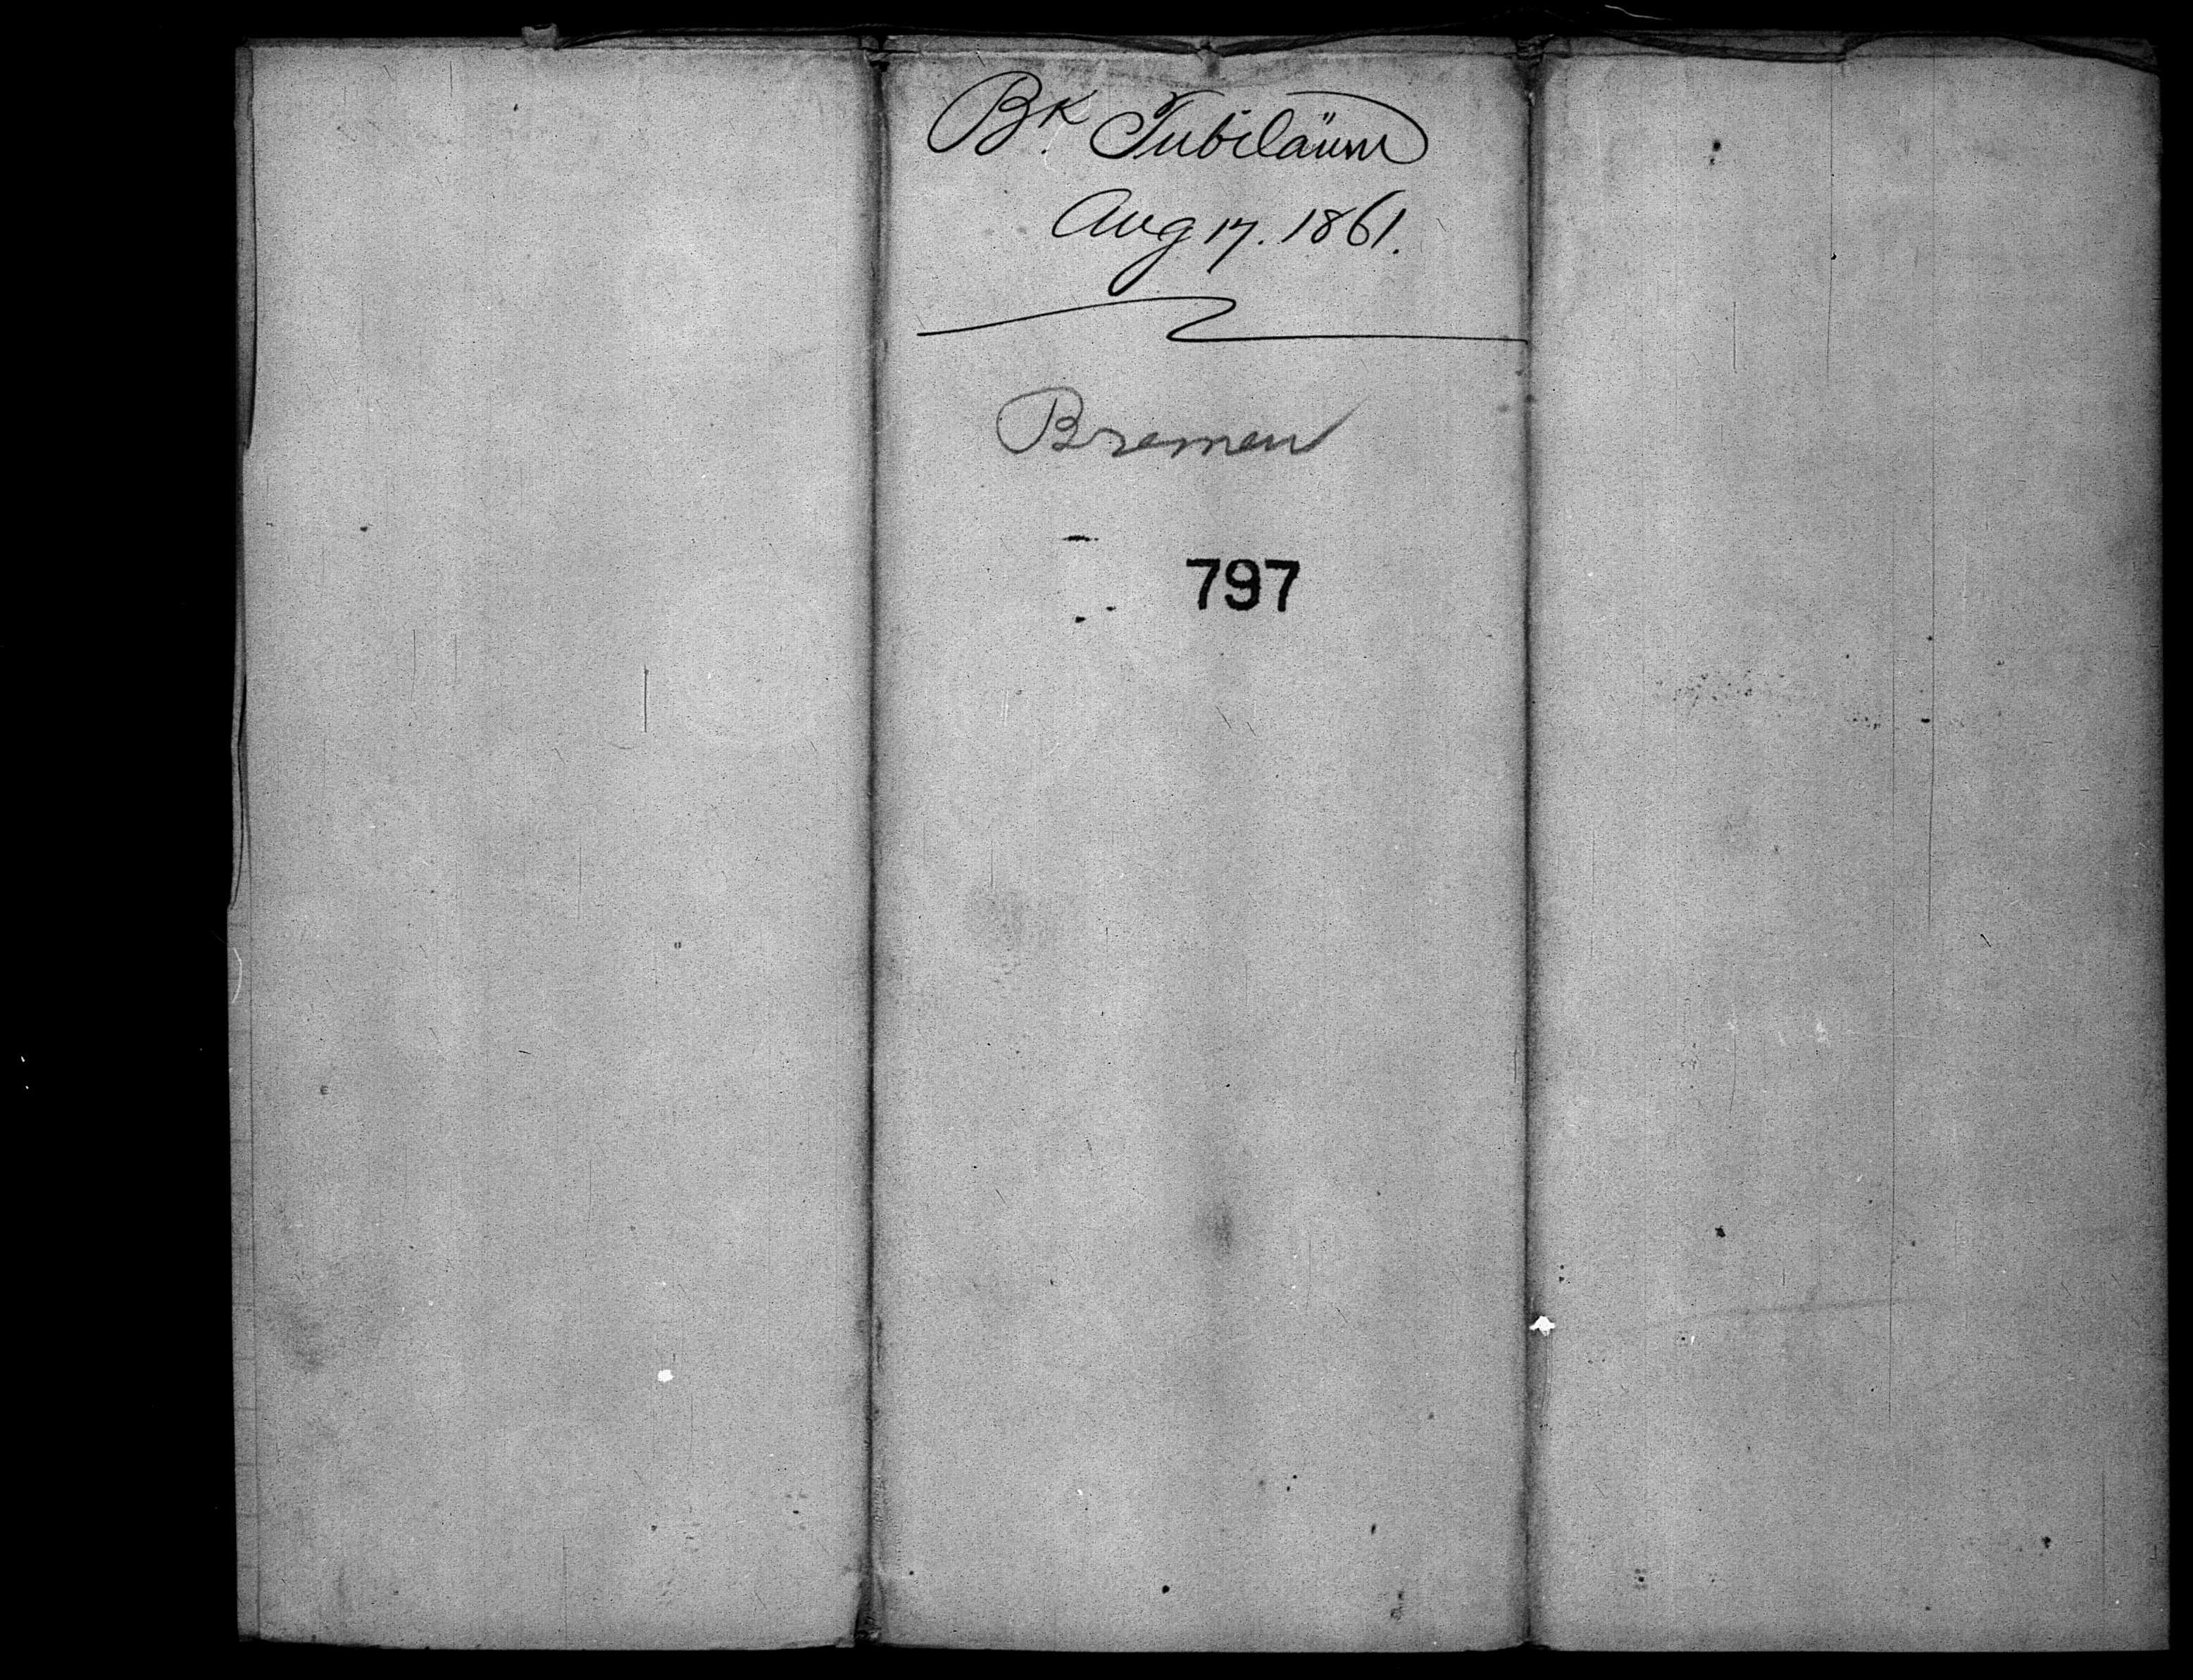 Bk. Jubiläum
Aug 17. 1861.
Bremen
797